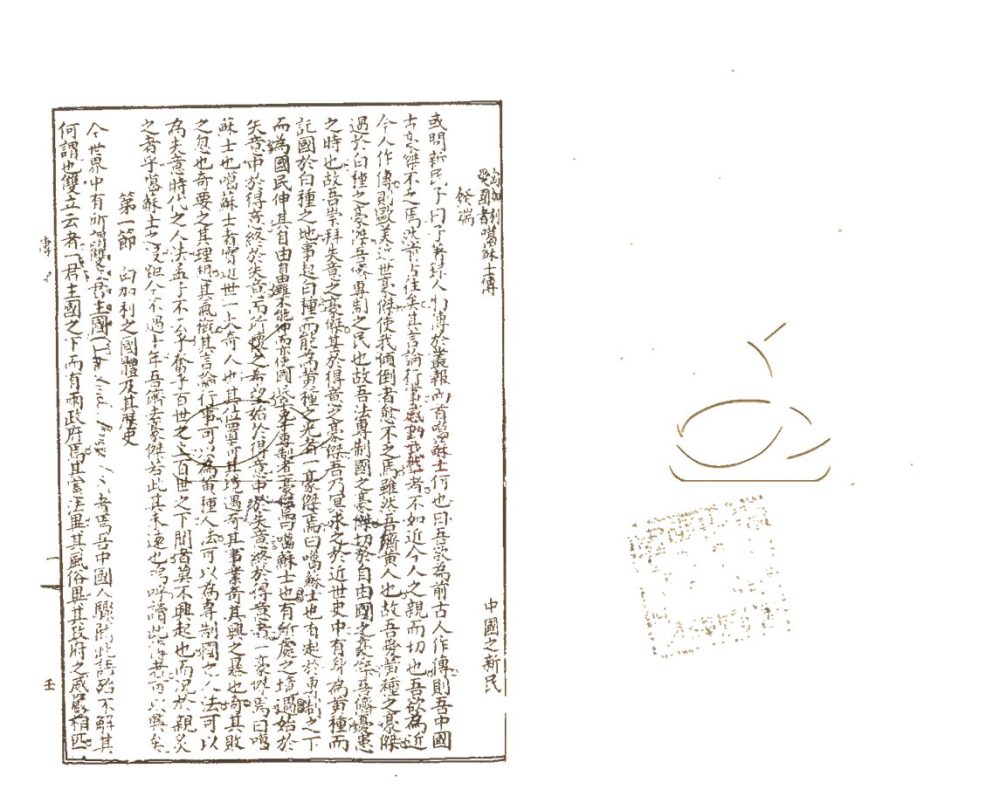 匈加利
愛國者噶蘇士傳
發端
中國之新民
或問新民子曰子為人物傳於叢報而首噶蘇士何也曰吾欲為前古人作傳則吾中國
古豪傑不乏焉然前古往矣其言論行事感動我輩者不如近今人之親而切也吾欲為近
今人作傳則歐美近世豪傑使我傾倒者愈不乏焉雖然吾儕黃人也故吾愛黃種之豪傑
過於白種之豪傑吾儕專制之民也故吾法專制國之豪傑切於自由國之豪傑吾儕憂患
之時也故吾崇拜失意之豪傑甚於得意之豪傑吾乃冥求之於近世史中有身為黃種而
託國於白種之地事起白種而能為黃種之光者一豪傑焉曰噶蘇士也有起於專制之下
而為國民伸其自由自由雖不能伸而亦使國民卒專制者一豪傑焉曰噶蘇士也有所處之境遇始於
失意中於得意終於失意而所懷之希望始於得意中於失意終於得意者一豪傑焉曰噶
蘇士也噶蘇士者實近世一大奇人也其位置奇其境遇奇其事業奇其興之暴也奇其敗
之忽也奇要之其理想其氣概其言論行事可以為黃種人法可以為專制國之人法可以
為失意時代之人法孟子不云乎奮乎百世之上百世之下聞者莫不興起也而況於親炙
之者乎噶蘇士之沒距今不過十年吾儕去豪傑若此其未遠也嗚呼讀此傳者可以興矣
第一節 匈加利之國體及其歷史
今世界中有所謂雙立君主國者焉吾中國人驟聞此語殆不解其
何謂也雙立云者一君主國之下而有兩政府焉其憲法異其風俗異其政府之威嚴相匹
傳
一
壬